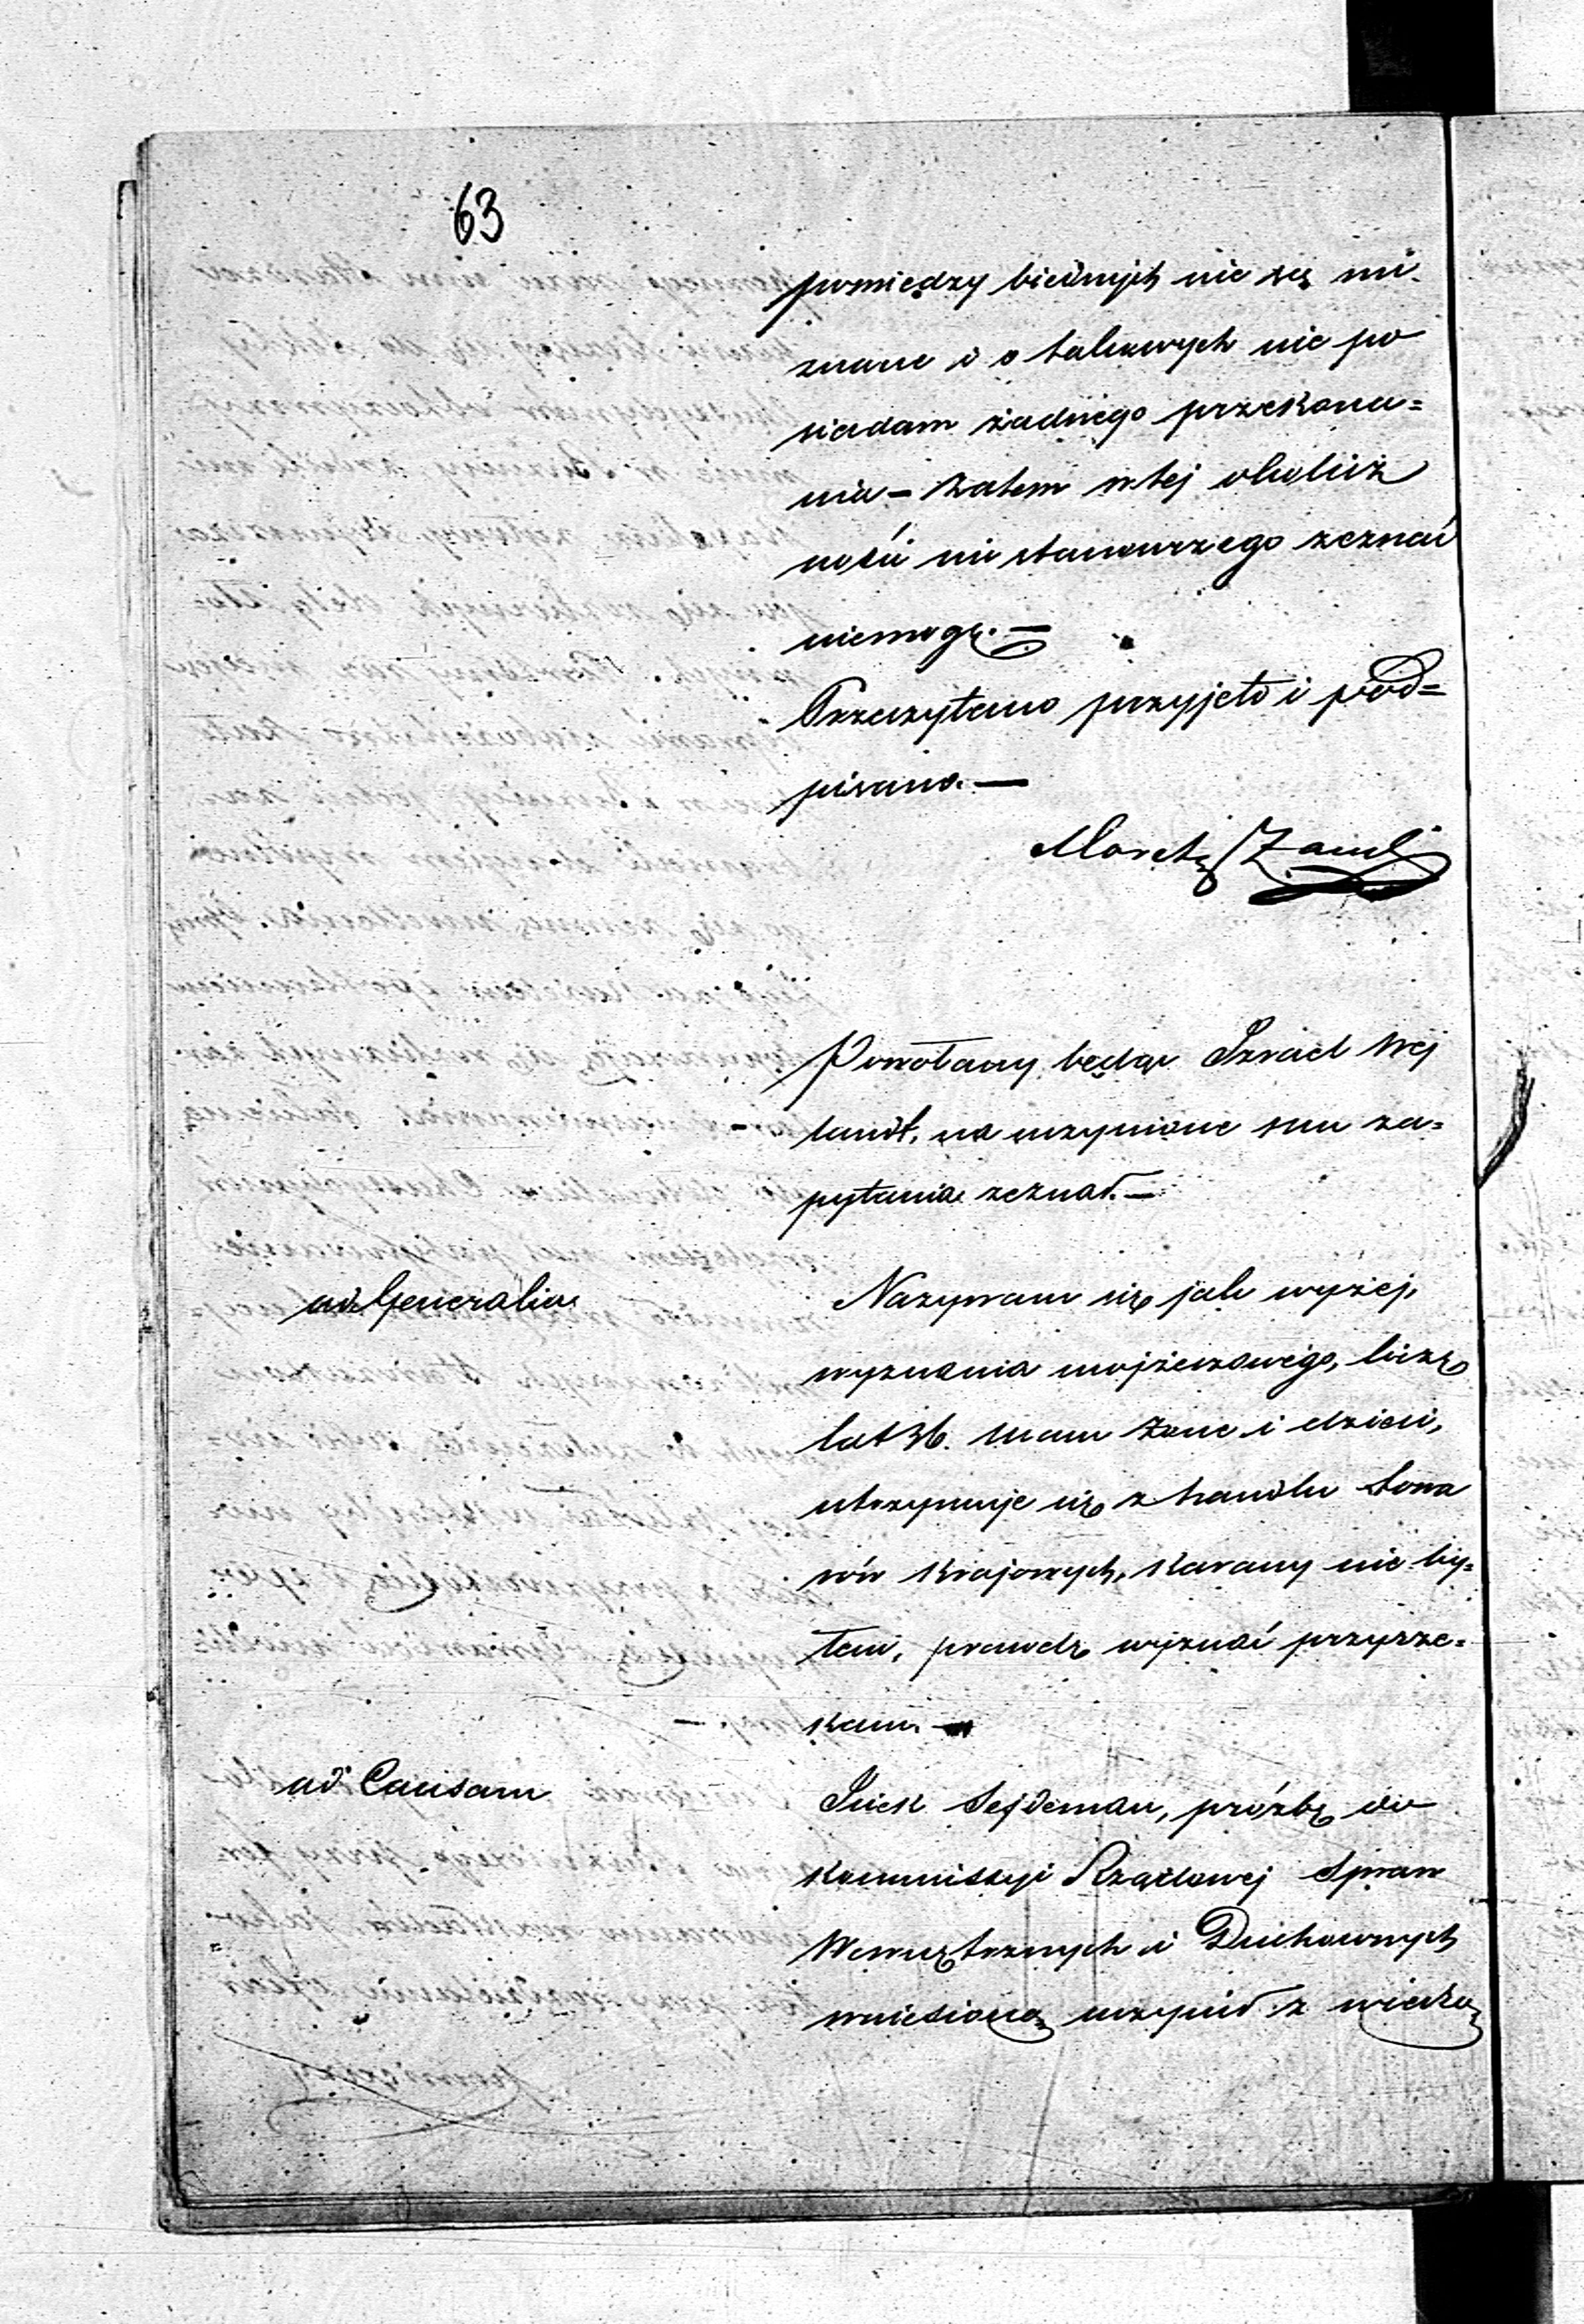 63
pomiędzy biednych nie są mi
znane i o takowych nie po
siadam żadnego przekona=
nia – Zatem w tej okolicz
ności nic stanowczego zeznać
niemogę. —
Przeczytano przyjęto i pod=
pisano. —
Powołany będąc Izrael Wej
landt, na uczynione mu za=
pytania zeznał. —
ad Generalia
Nazywam się jak wyżej,
wyznania mojżeszowego, liczę
lat 36. mam żone i dzieci,
utrzymuje się z handlu Towa
rów Krajowych, Karany nie by=
łem, prawdę wyznać przyrze=
kam. —
ad Causam
Icek Sejdeman, prózbę do
Kommissyi Rządowej Spraw
Wewnętrznych i Duchownych
wniesioną uczynił z